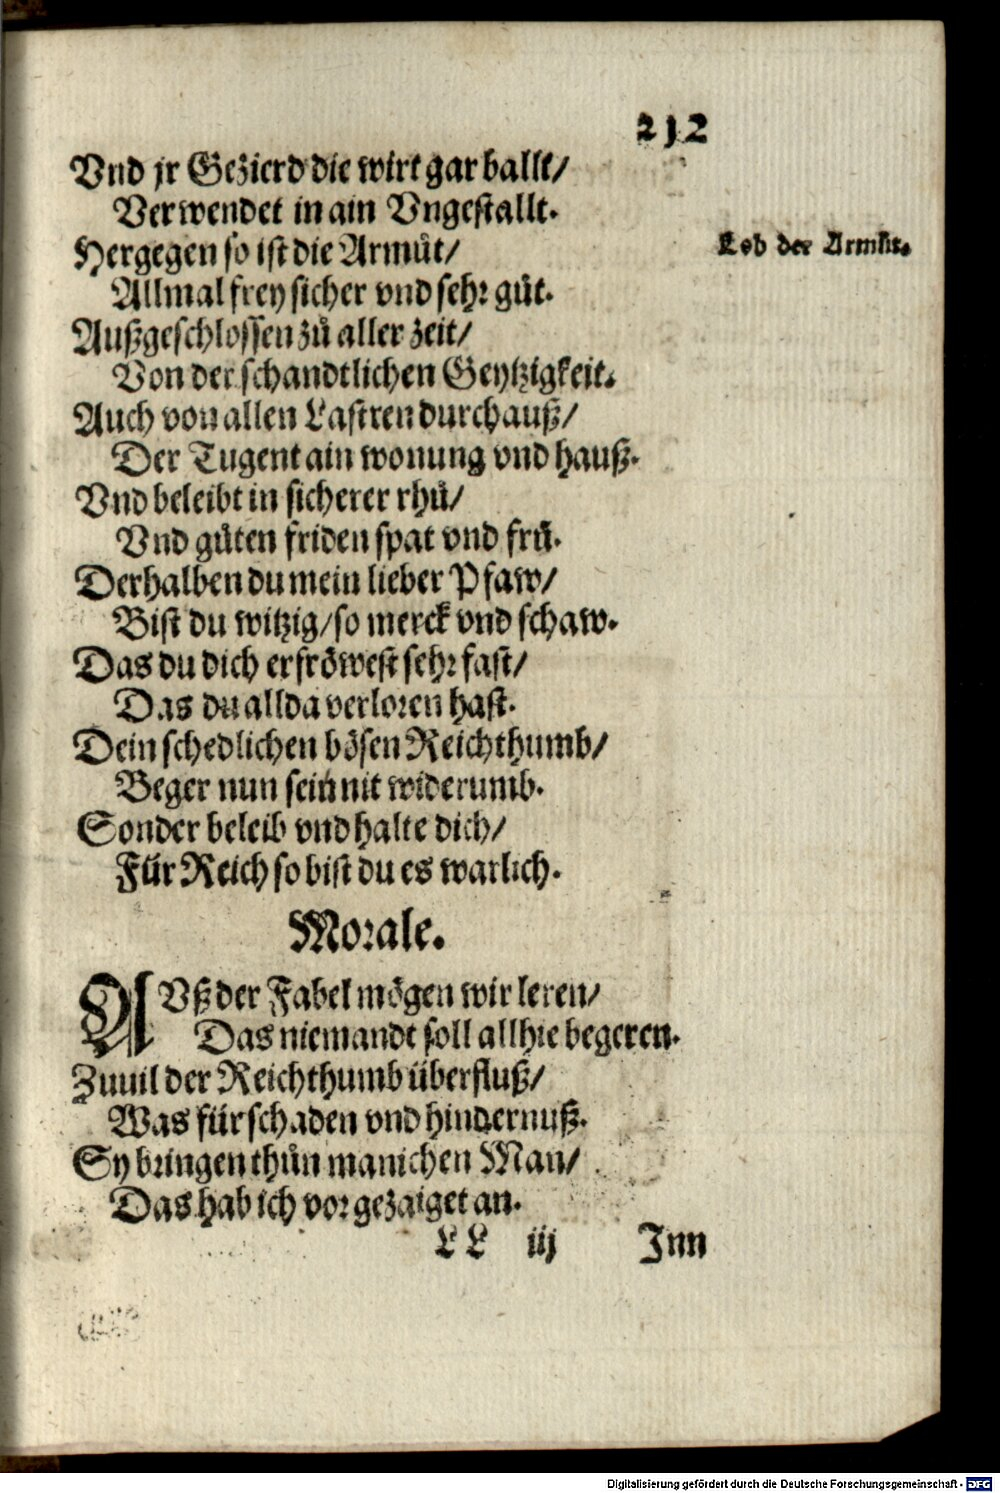 212
Vnd jr Gezierd die wirt gar ballt/
Verwendet in ain Vngestallt.
Hergegen so ist die Armůt/
Lob der Armůt.
Allmal frey sicher vnd sehr gůt.
Außgeschlossen zů aller zeit/
Von der schandtlichen Geytzigkeit.
Auch von allen Lastren durchauß/
Der Tugent ain wonung vnd hauß.
Vnd beleibt in sicherer rhů/
Vnd gůten friden spat vnd frů.
Derhalben du mein lieber Pfaw/
Bist du witzig/so merck vnd schaw.
Das du dich erfröwest sehr fast/
Das du allda verloren hast.
Dein schedlichen bösen Reichthumb/
Beger nun sein nit widerumb.
Sonder beleib vnd halte dich/
Für Reich so bist du es warlich.
Morale.
AVß der Fabel mögen wir leren/
Das niemandt soll allhie begeren.
Zuuil der Reichthumb überfluß/
Was für schaden vnd hindernuß.
Sy bringen thůn manichen Man/
Das hab ich vor gezaiget an.
LL iij Inn
Digitalisierung gefördert durch die Deutsche Forschungsgemeinschaft - DFG